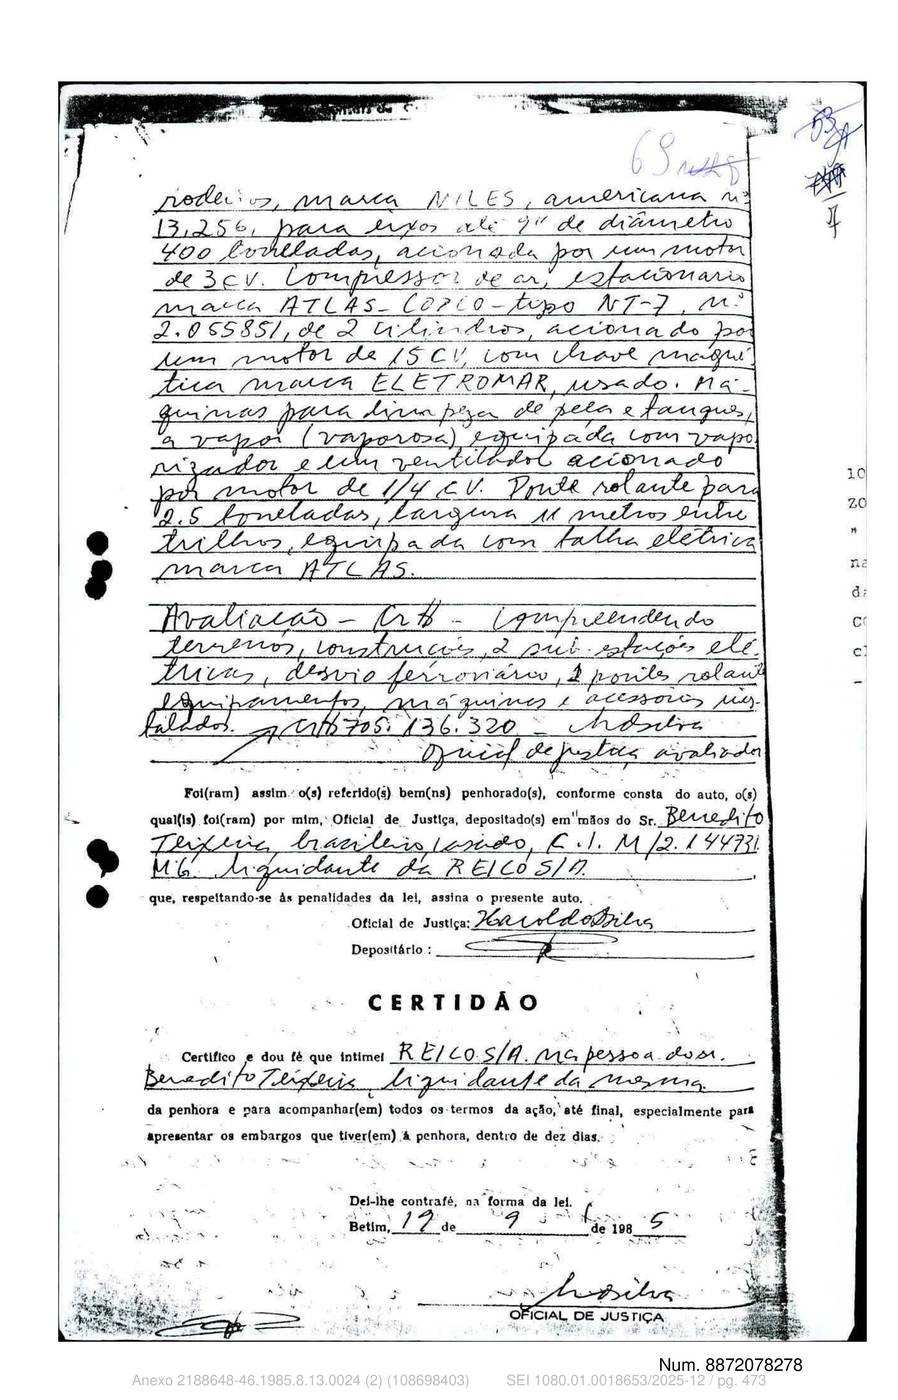 53
69
rodeiros, marca NILES, americana nº
13.256, para eixos até 9" de diâmetro
400 toneladas, acionada por um motor
de 3 CV. Compressor de ar, estacionario
marca ATLAS-COPCO-tipo NT-7, nº
2.055851, de 2 cilindros, acionado por
um motor de 15 CV, com chave magné-
tica marca ELETROMAR, usado. Má-
quinas para limpeza de peça e tanques,
a vapor (vaporosa) equipada com vapo
rizador e um ventilador acionado
por motor de 1/4 CV. Ponte rolante para
2.5 toneladas, largura 11 metros entre
trilhos, equipada com talha elétrica
marca ATLAS.
Avaliação - Cr$ - Compreendendo
terrenos, construções, 2 sub-estações elé-
tricas, desvio ferroviário, 2 pontes rolante
equipamentos, máquinas e acessórios ins-
talados. Cr$ 705.136.320 - HdSilva
Oficial de justiça avaliador
Foi(ram) assim o(s) referido(s) bem(ns) penhorado(s), conforme consta do auto, o(s)
qual(is) foi(ram) por mim, Oficial de Justiça, depositado(s) em mãos do Sr. Benedito
Teixeira, brasileiro, casado, C.I. M/2.144731
MG. liquidante da REICO S/A.
que, respeitando-se às penalidades da lei, assina o presente auto.
Oficial de Justiça: Haroldo Silva
Depositário :
CERTIDÃO
Certifico e dou fé que intimei REICO S/A. na pessoa do sr.
Benedito Teixeira, liquidante da mesma.
da penhora e para acompanhar(em) todos os termos da ação, até final, especialmente para
apresentar os embargos que tiver(em) à penhora, dentro de dez dias.
Dei-lhe contrafé, na forma da lei.
Betim, 19 de 9 de 1985
OFICIAL DE JUSTIÇA
Num. 8872078278
Anexo 2188648-46.1985.8.13.0024 (2) (108698403) SEI 1080.01.0018653/2025-12 / pg. 473